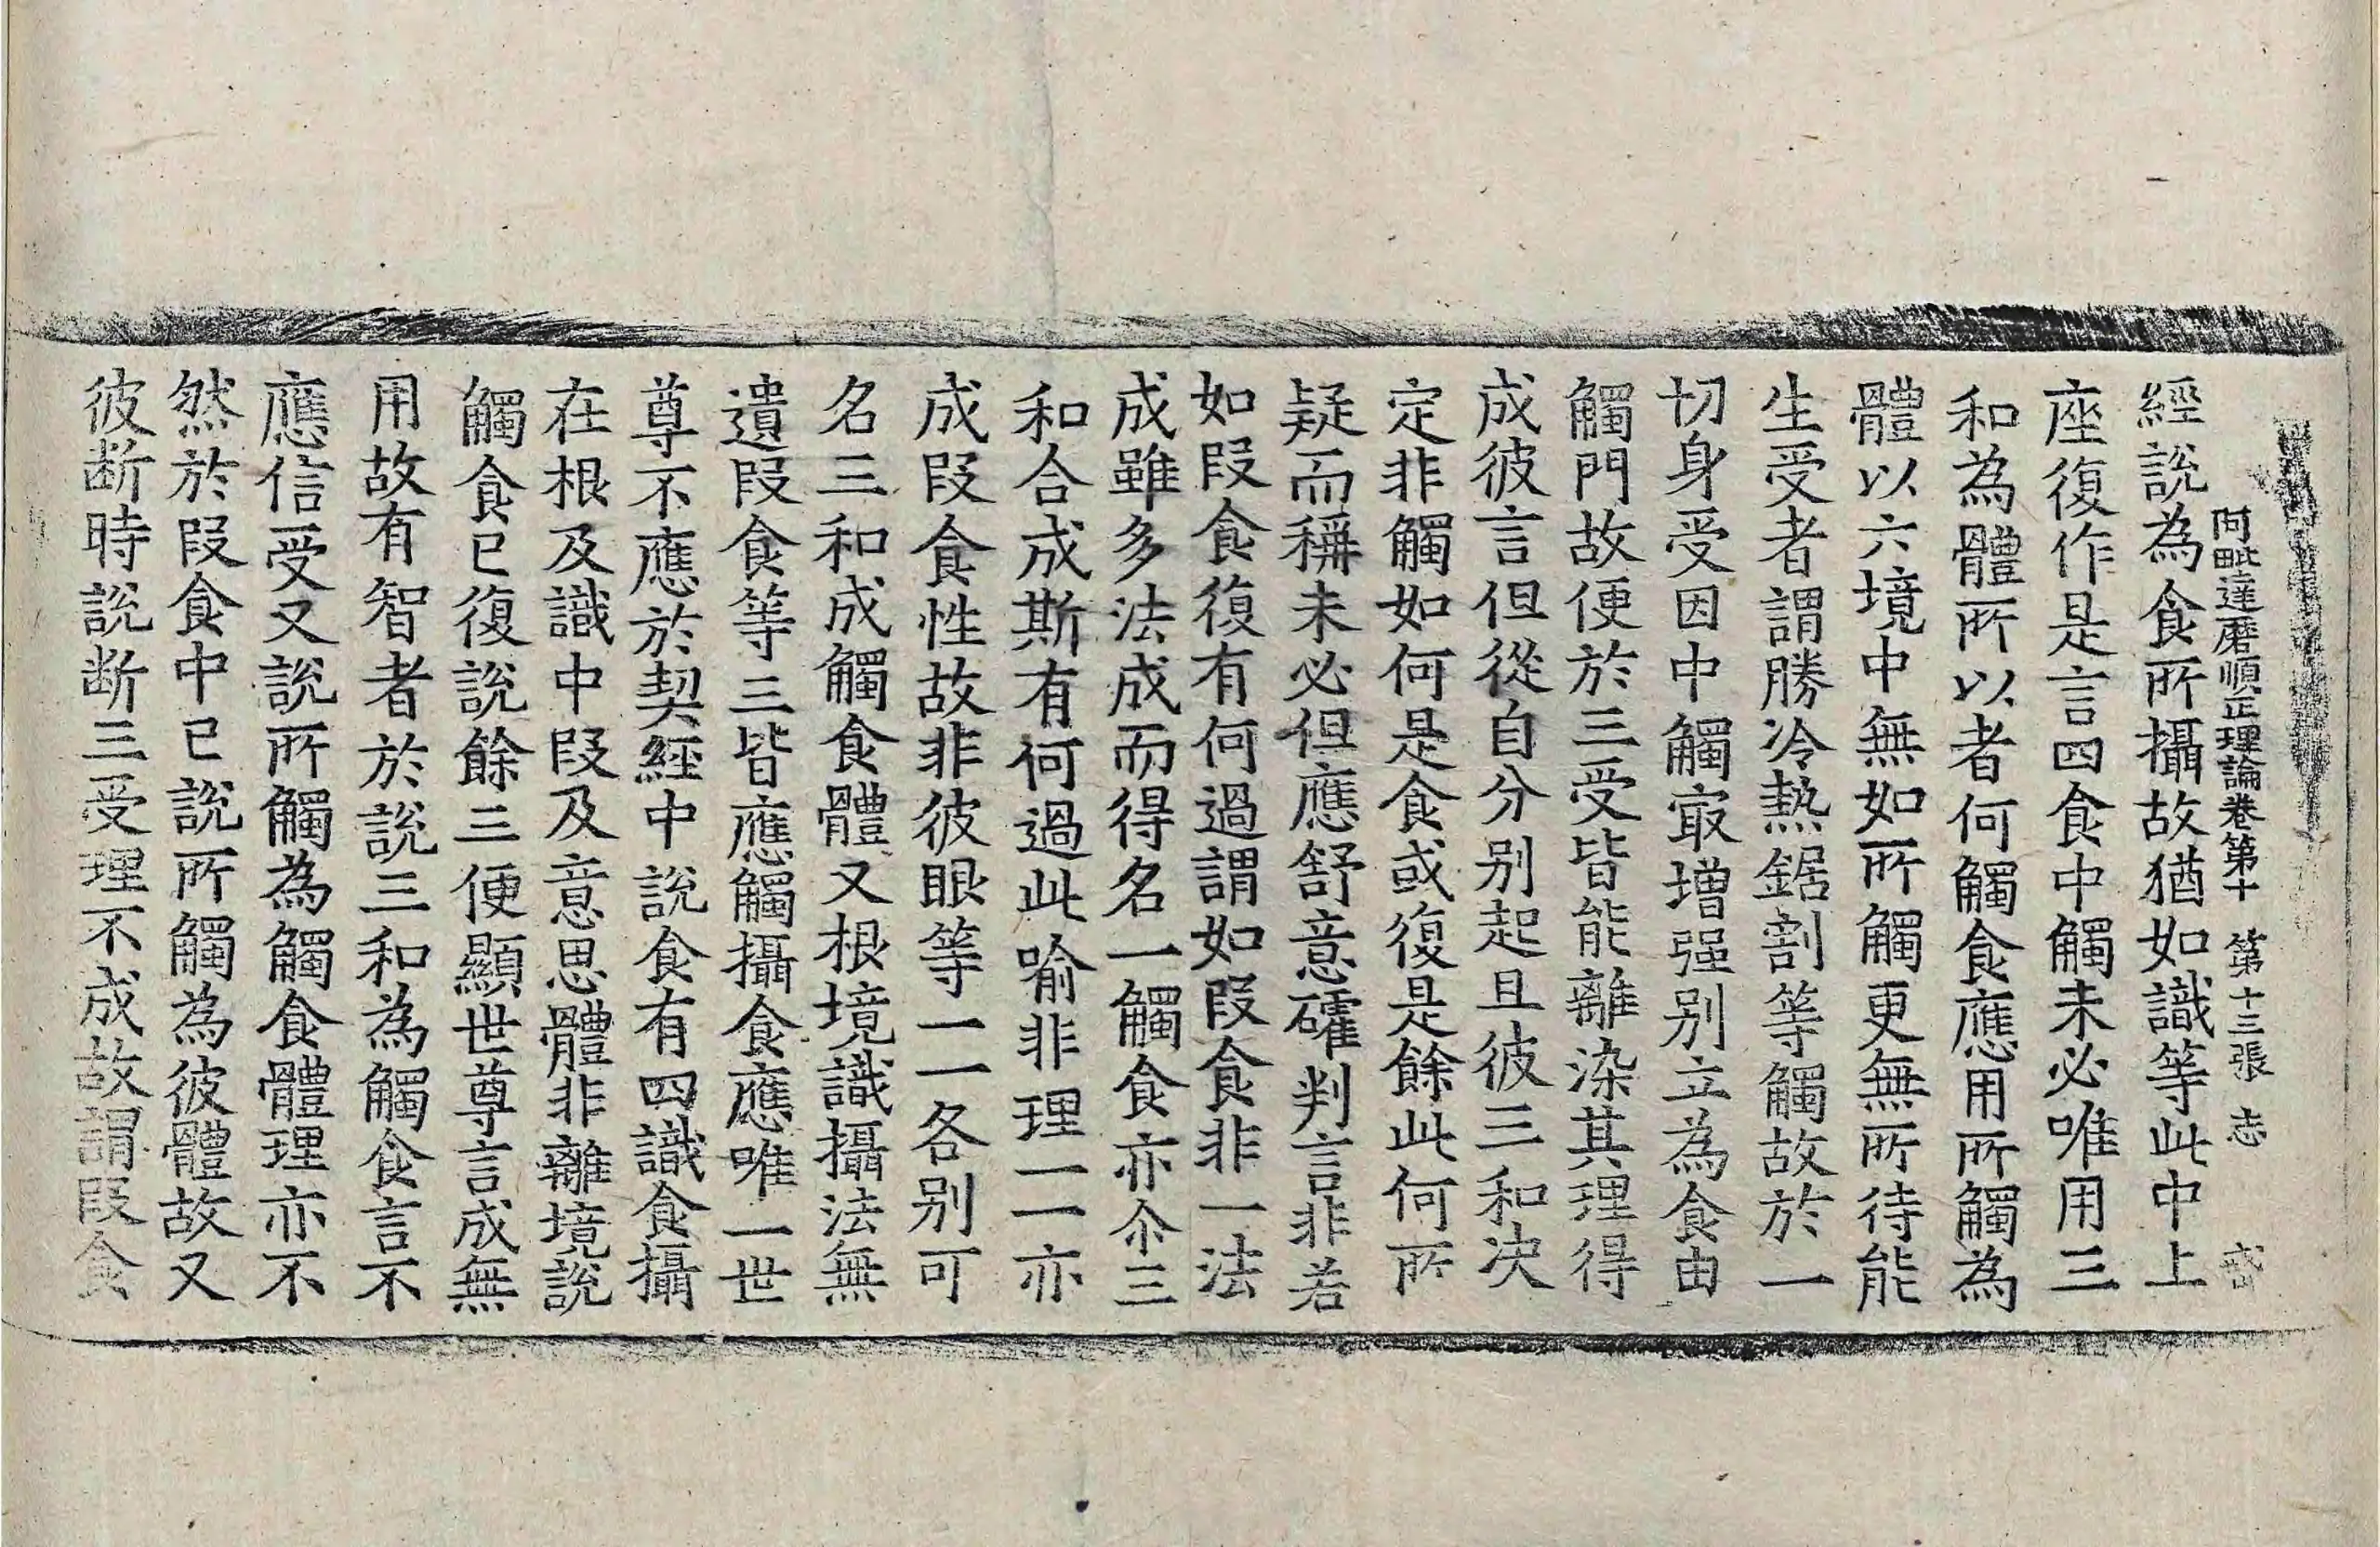 阿毗達磨順正理論卷第十　第十三張　志
經說為食所攝故猶如識等此中上
座復作是言四食中觸未必唯用三
和為體所以者何觸食應用所觸為
體以六境中無如所觸更無所待能
生受者謂勝冷熱鋸割等觸故於一
切身受因中觸㝡增强別立為食由
觸門故便於三受皆能離染其理得
成彼言但從自分別起且彼三和决
定非觸如何是食或復是餘此何所
疑而稱未必但應舒意礭判言非若
如段食復有何過謂如段食非一法
成雖多法成而得名一觸食亦尒三
和合成斯有何過此喻非理一一亦
成段食性故非彼眼等一一各別可
名三和成觸食體又根境識攝法無
遺段食等三皆應觸攝食應唯一世
尊不應於契經中說食有四識食攝
在根及識中段及意思體非離境說
觸食已復說餘三便顯世尊言成無
用故有智者於說三和為觸食言不
應信受又說所觸為觸食體理亦不
然於段食中已說所觸為彼體故又
彼断時說断三受理不成故謂段食